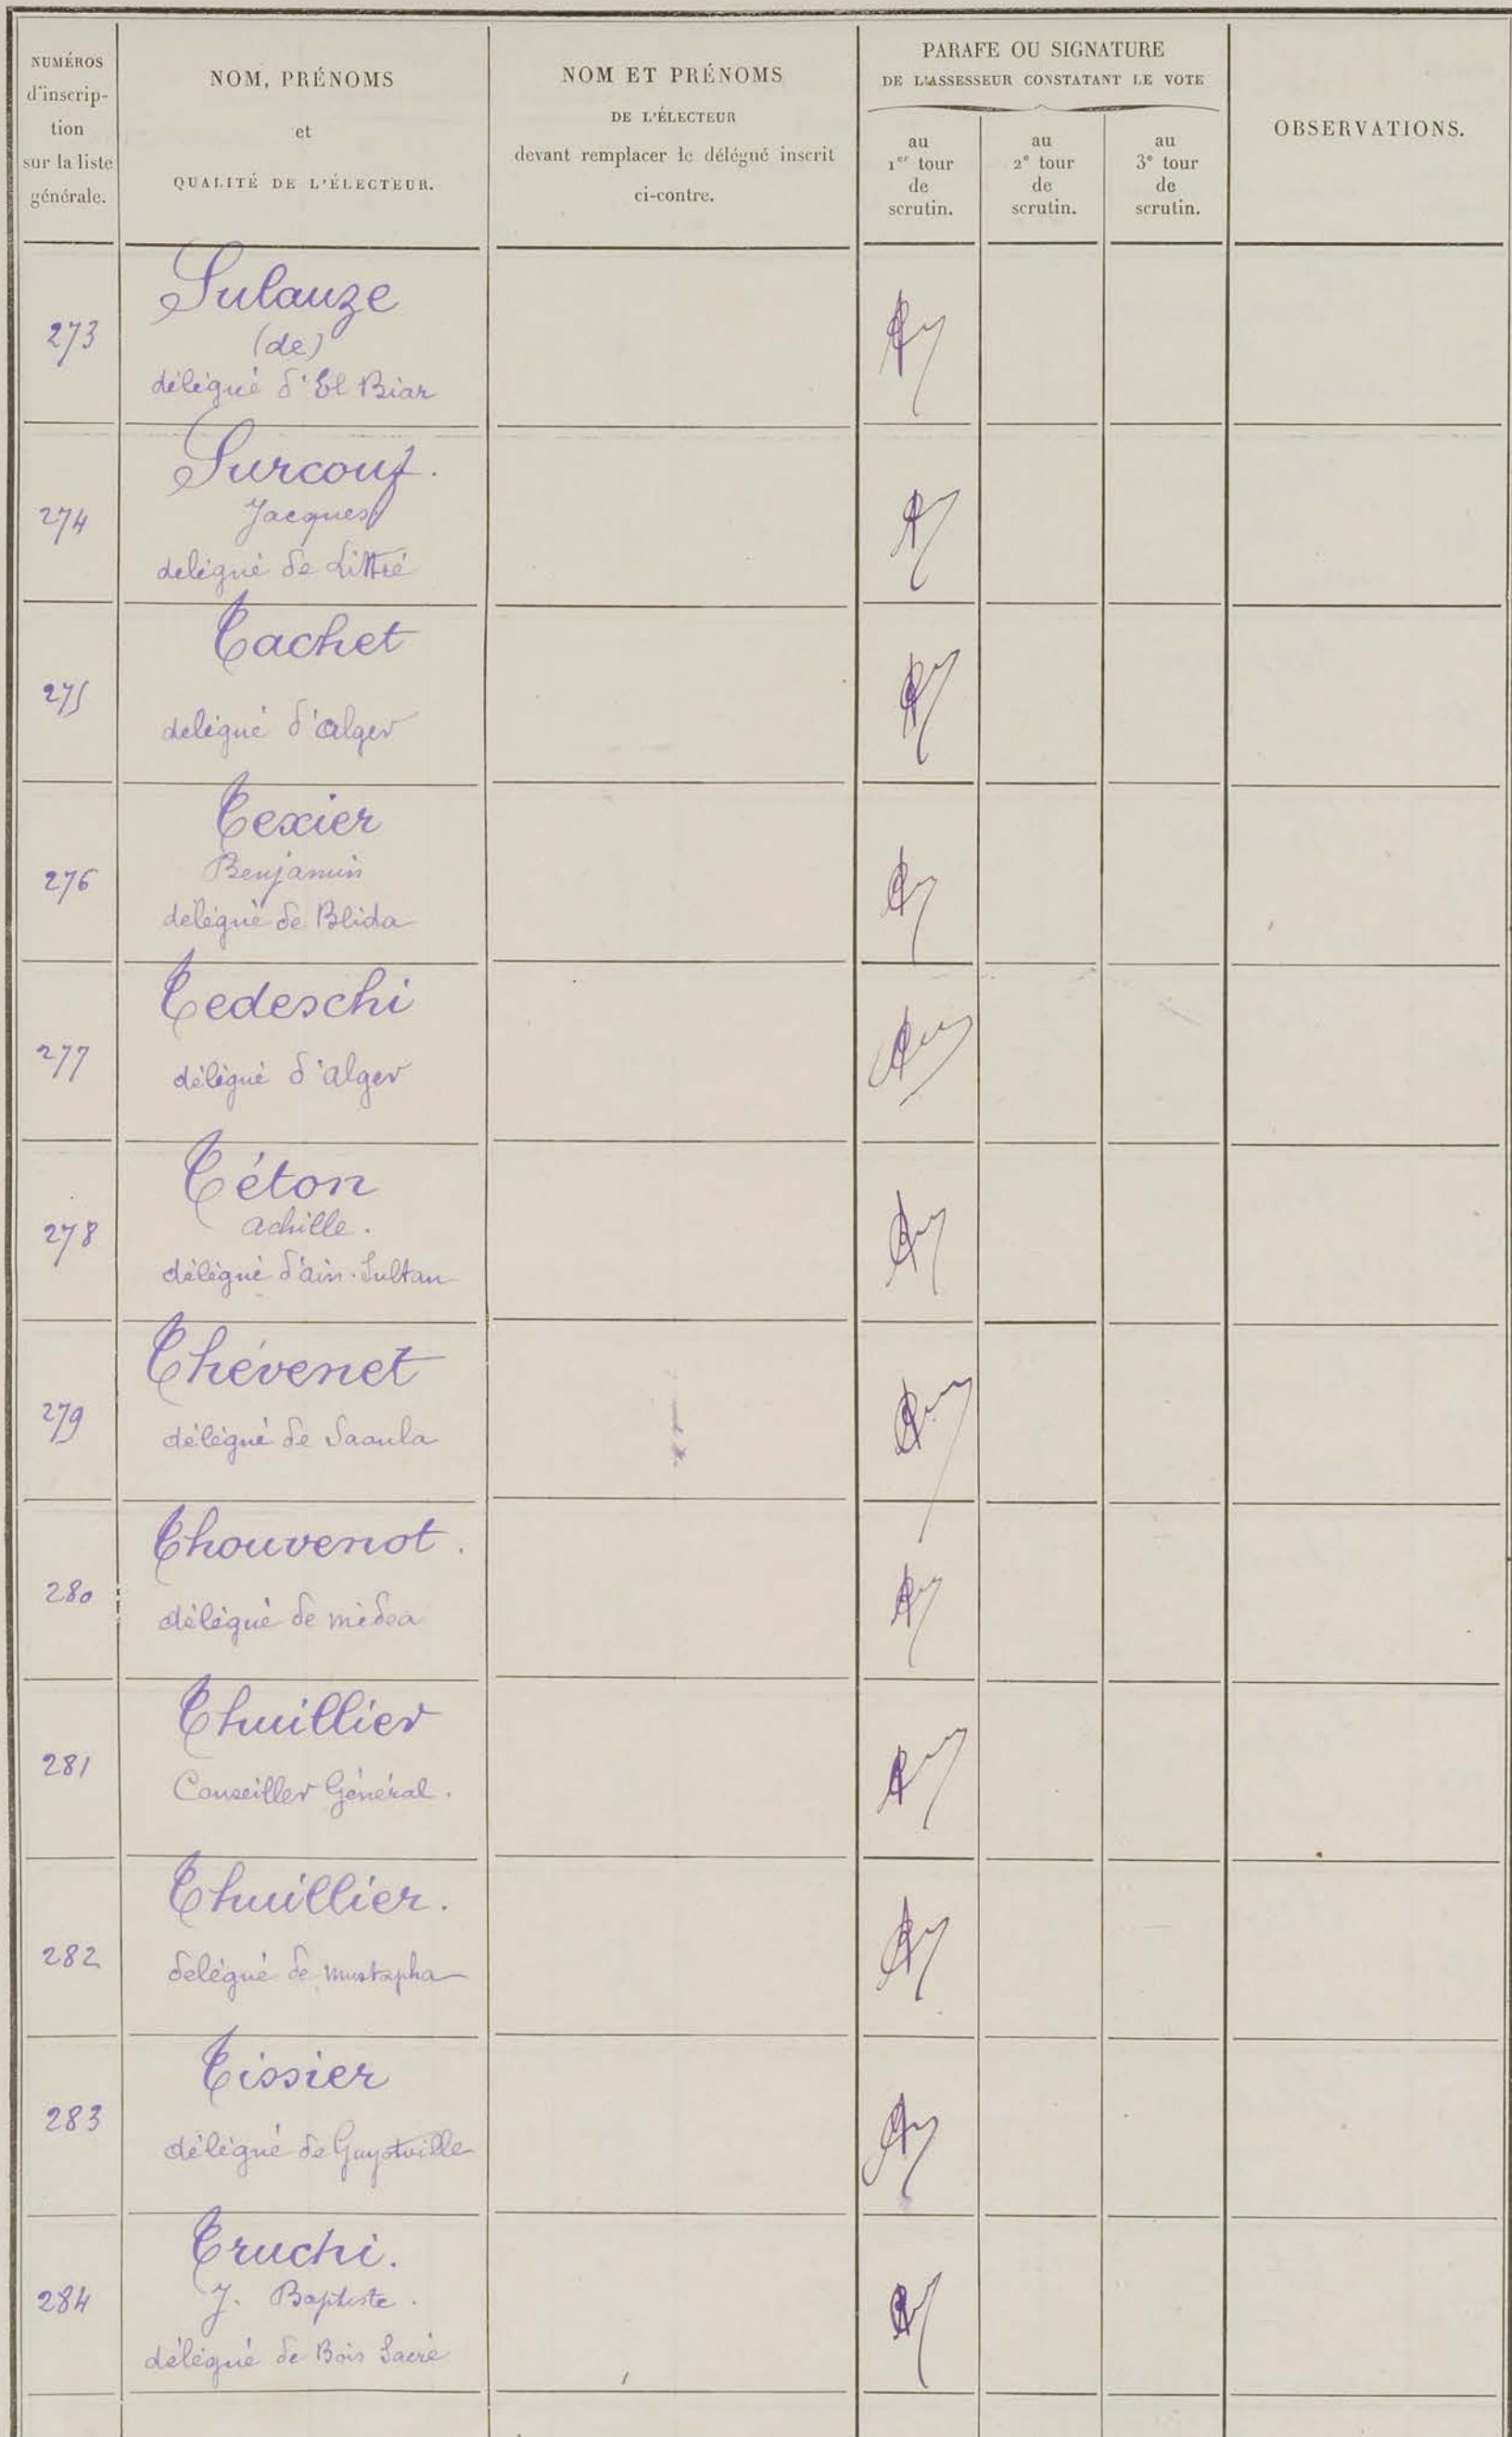 NUMÉROS
d'inscrip-
tion
sur la liste
générale.
NOM, PRÉNOMS
et
QUALITÉ DE L'ÉLECTEUR.
NOM ET PRÉNOMS
DE L'ÉLECTEUR
devant remplacer le délégué inscrit
ci-contre.
PARAFE OU SIGNATURE
DE L'ASSESSEUR CONSTATANT LE VOTE
au
1er tour
de
scrutin.
au
2e tour
de
scrutin.
au
3e tour
de
scrutin.
OBSERVATIONS.
273
Sulauze
(de)
délégué d'El Biar
274
Surcouf.
Jacques
delégué de Littré
275
Tachet
delégué d'alger
276
Texier
Benjamin
délégué de Blida
277
Tedeschi
délégué d'alger
278
Téton
achille.
délégué d'ain-Sultan
279
Thévenet
délégué de Saoula
280
Thouvenot.
délégué de médea
281
Thuillier
Conseiller Général.
282
Thuillier.
delégué de mustapha
283
Tissier
délégué de Guyotville
284
Truchi.
J. Baptiste.
délégué de Bois Sacré